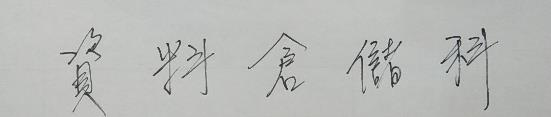 資料倉儲科